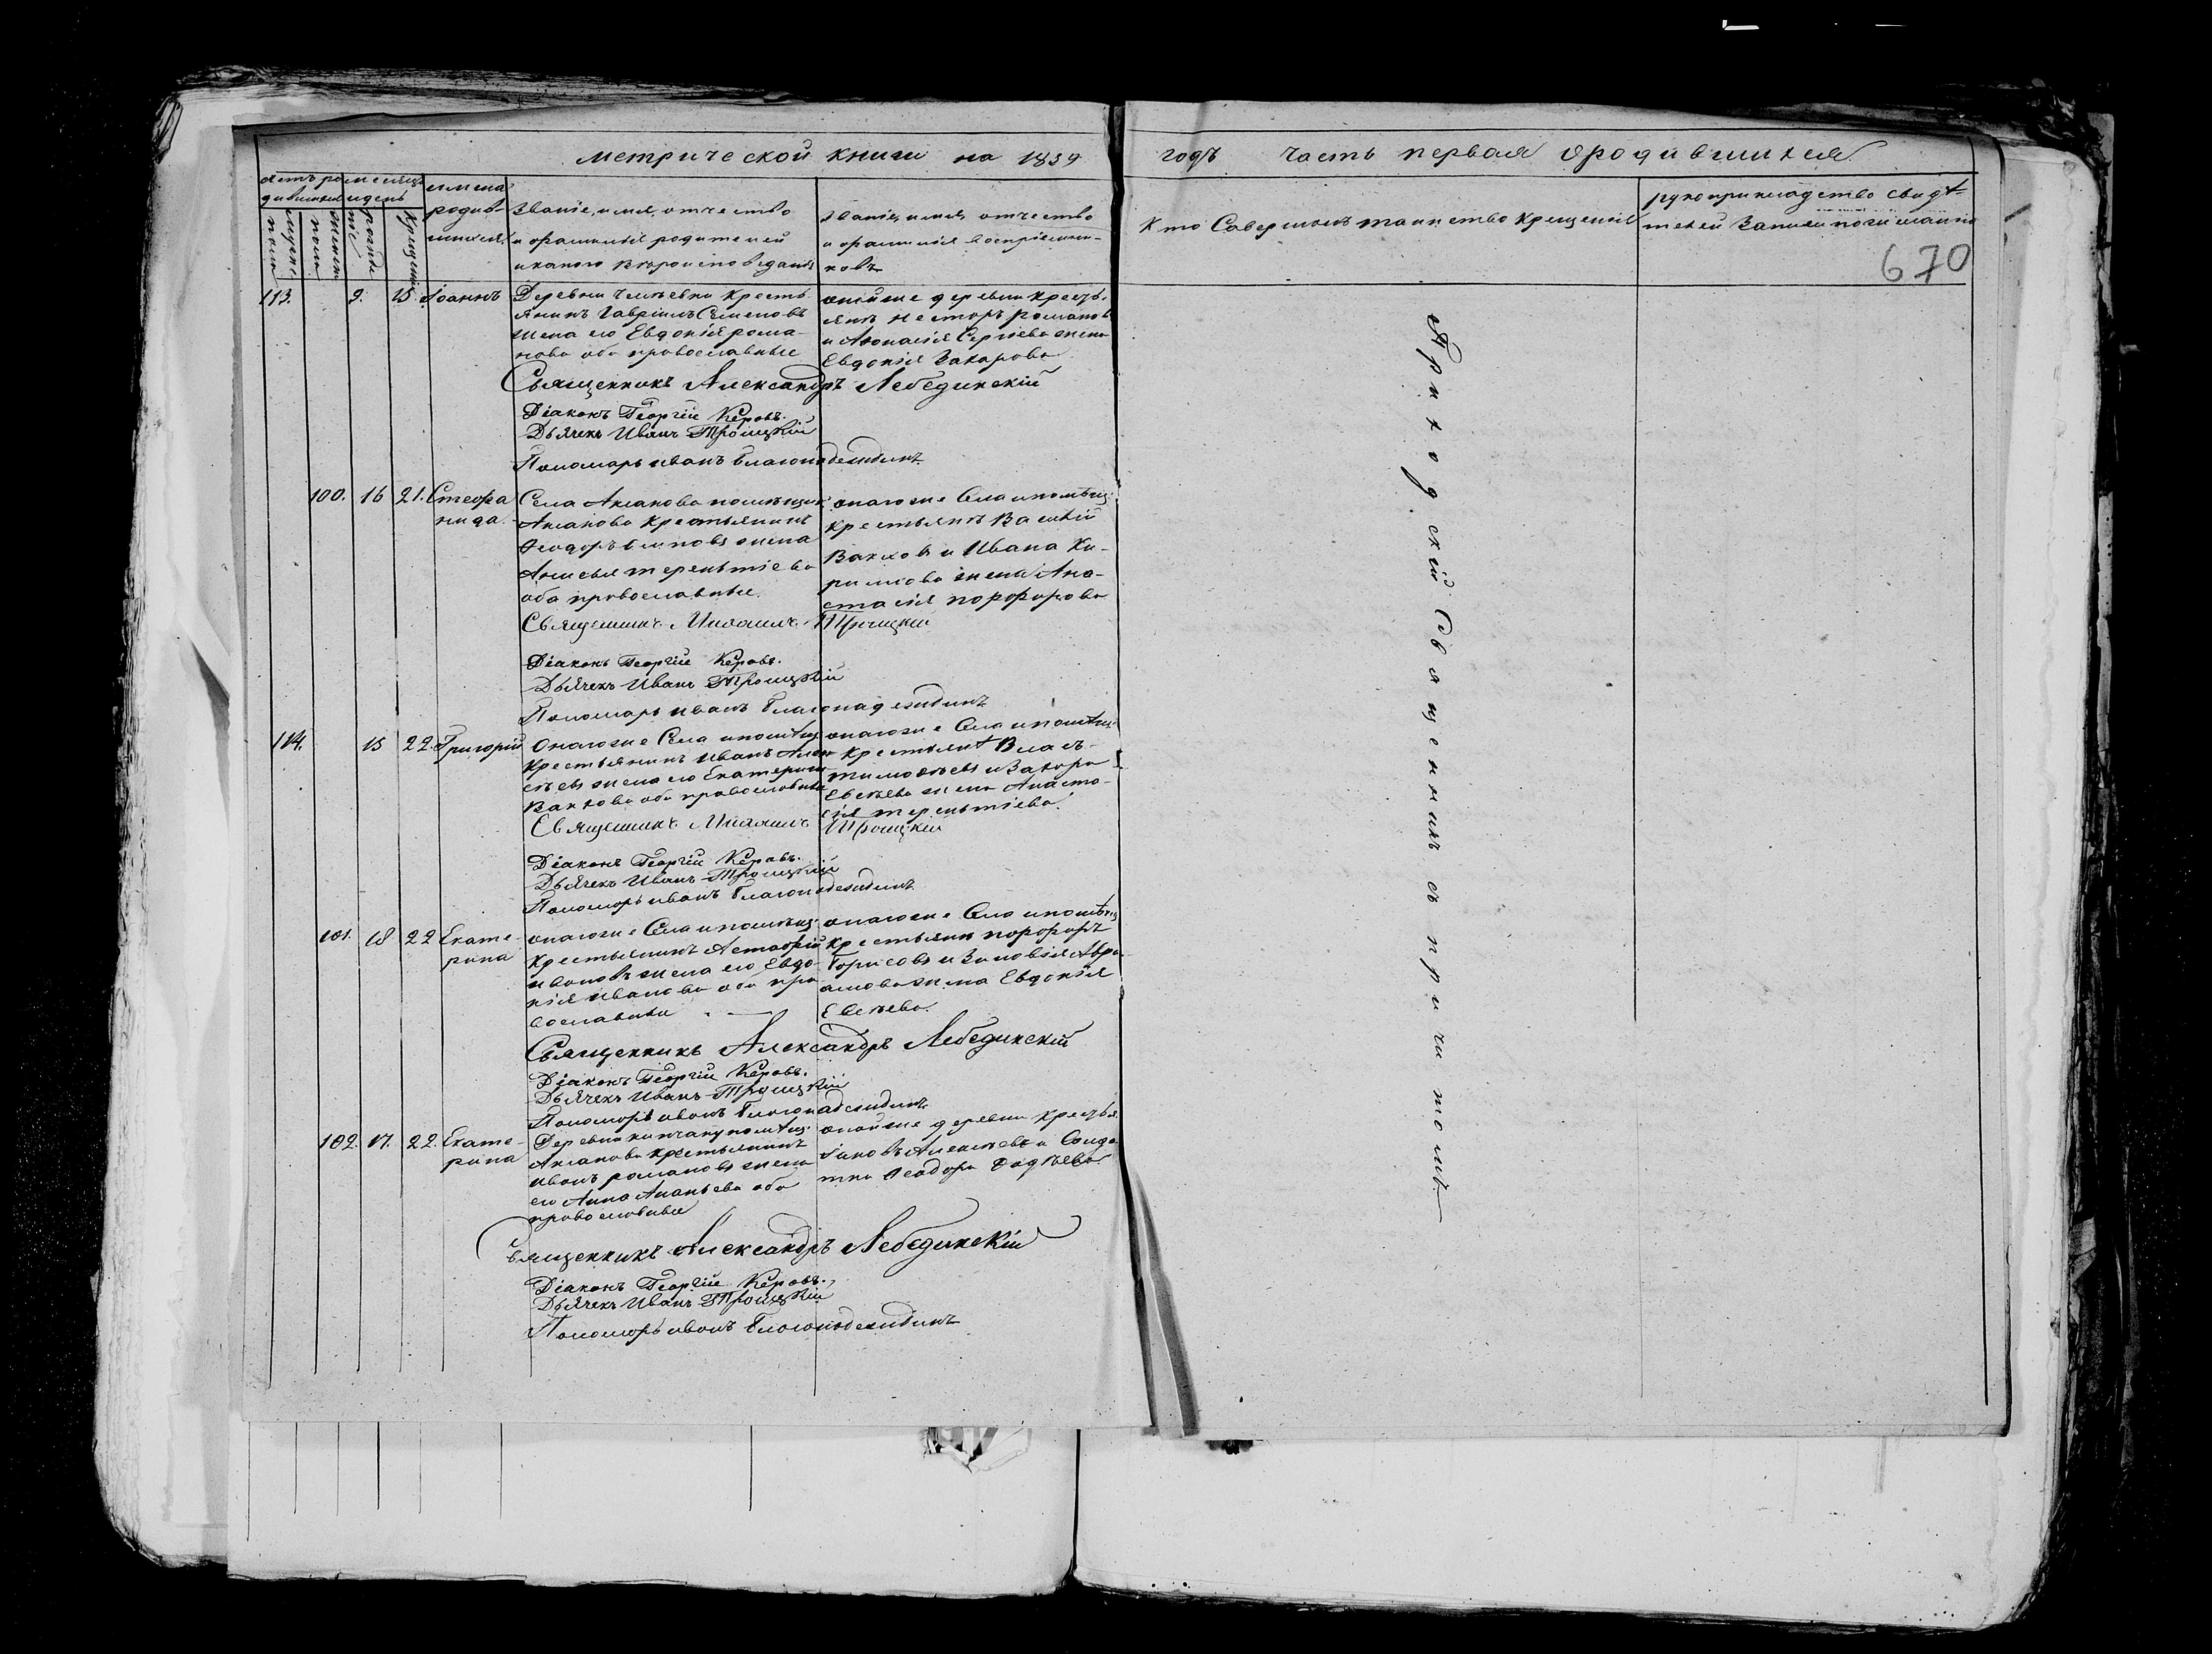 Метрической книги на 1859
годъ часть первая о родившихся
670
имена родив-шихся
Званіе, имя, отчество
и фамилія родителей
и какого вѣроисповеданія
Званіе, имя, отчество
и фамилія воспріемни-
ковъ
Кто Совершилъ таинство крещенія
рукоприкладство свидѣ-
телей Записи по желанію
Приходскій Священникъ съ причитомъ
113. 9. 15. Іоаннъ
Деревни крестья
янинъ Гавріилъ Семеновъ
жена его Евдокія рома-
нова оба православные
оной же деревни крестья
янъ Несторъ романовъ
и Афонасія Сергіева жена
Евдокія Захарова
Священникъ Александръ Лебединскій
Діаконъ Георгій Керовъ.
Дьячекъ Иванъ Троицкій
Пономарь иванъ благонадеждинъ
100. 16 21. Стефа
нида.
Села Аксакова помѣщик
Аксакова крестьянинъ
Феодоръ жена
терентіева
оба православные.
онаго же Села и помѣщ.
крестьянъ Василій
и Ивана Ки-
рилова жена Ана-
стасія порфирова
Священникъ Михаилъ Троицкій
Діаконъ Георгій Керовъ.
Дьячекъ Иванъ Троицкій
Пономарь иванъ благонадеждинъ
114. 15 22. Григорій
Онаго же Села и помѣщ
крестьянинъ иванъ Алек
сѣевъ жена его Екатерина
оба православные
онаго же Села и помѣщ
крестьянъ Власъ
тимофѣевъ и Захара
Евсѣева жена Анаста-
сія терентіева.
Священникъ Михаилъ Троицкій
Діаконъ Георгій Керовъ.
Дьячекъ Иванъ Троицкій
Пономарь иванъ благонадеждинъ
101. 18 22 Екате-
рина
онаго же Села и помѣщ.
крестьянинъ Астафій
ивановъ жена его Евдо-
кія иванова оба пра
вославные
онаго же Села и помѣщ
крестьянъ порфиръ
борисовъ и Зиновія Авра
амова жена Евдокія
Евсѣева.
Священникъ Александръ Лебединскій
Діаконъ Георгій Керовъ.
Дьячекъ Иванъ Троицкій
Пономарь иванъ благонадеждинъ
102. 17. 22. Екате-
рина
Деревни кипчаку помѣщ.
Аксакова крестьянинъ
иванъ романовъ жена
его Анна Ананьева оба
православные
оной же деревни крестья
Іаковъ Алексѣевъ и Солда
тка Феодора Фадѣева
Священникъ Александръ Лебединскій
Діаконъ Георгій Керовъ.
Дьячекъ Иванъ Троицкій
Пономарь иванъ благонадеждинъ